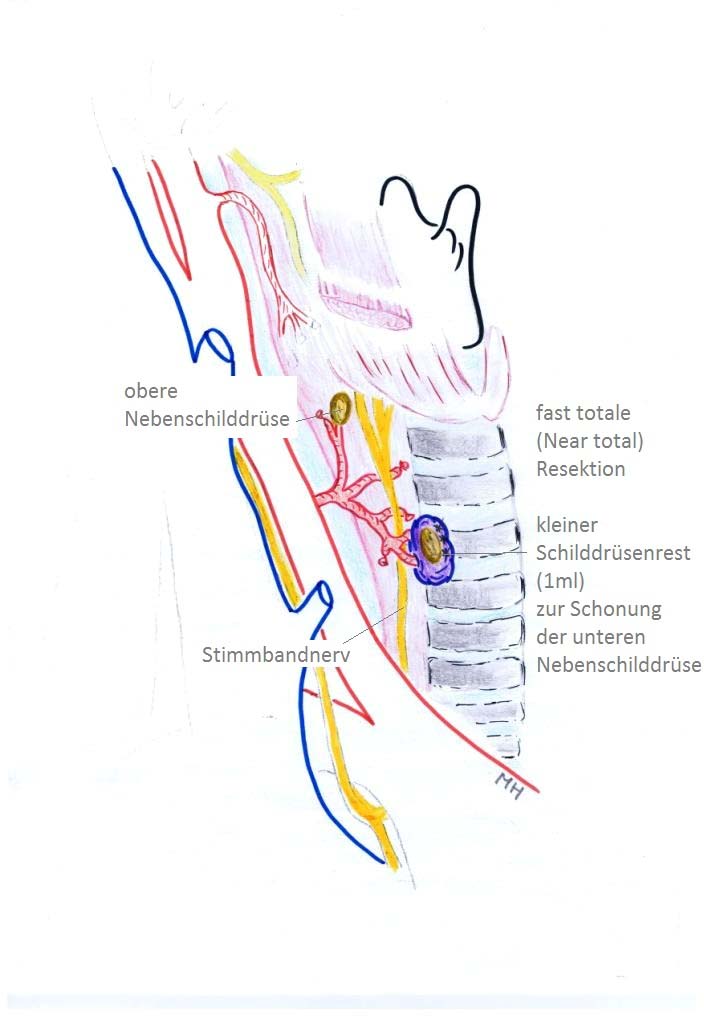 obere
Nebenschilddrüse
fast totale
(Near total)
Resektion
kleiner
Schilddrüsenrest
(1ml)
zur Schonung
der unteren
Nebenschilddrüse
Stimmbandnerv
MH